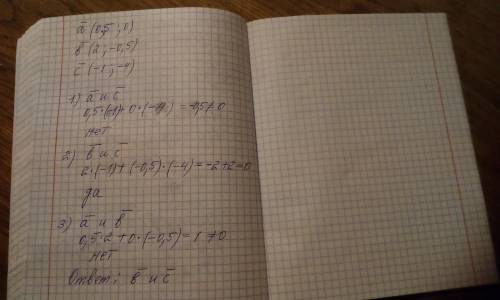 a̅ (0,5 ; 0)
b̅ (2 ; -0,5)
c̅ (-1 ; -4)
1) a̅ и c̅
0,5·(-1)+0·(-4) = -0,5≠0
нет
2) b̅ и c̅
2·(-1)+(-0,5)·(-4)=-2+2=0
да
3) a̅ и b̅
0,5·2+0·(-0,5)=1≠0
нет
Ответ: b̅ и c̅